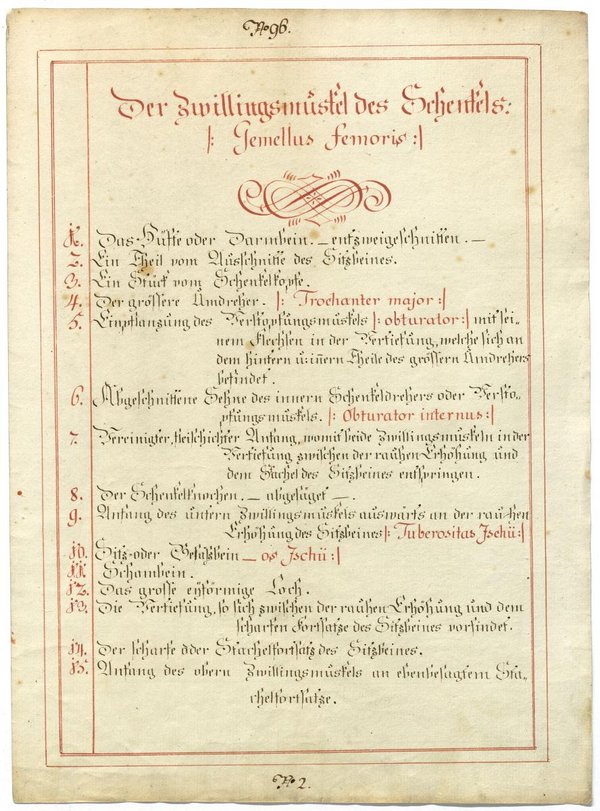 No 96.
Der Zwillingsmuskel des Schenkels:
|: Gemellus femoris :|
1. Das Hüfte oder Darmbein. – entzweigeschnitten. –
2. Ein Theil vom Ausschnitte des Sitzbeines.
3. Ein Stück vom Schenkelkopfe.
4. Der grössere Umdreher. |: Trochanter major :|
5. Einpflanzung des Verstopfungsmuskels |: obturator :| mit sei-
nem Flechsen in der Vertiefung, welche sich an
dem hintern u: innern Theile des grössern Umdrehers
befindet.
6. Abgeschnittene Sehne des innern Schenkeldrehers oder Versto-
pfungsmuskels. |: Obturator internus :|
7. Vereinigter, fleischichter Anfang, womit beide Zwillingsmuskeln in der
Vertiefung zwischen der rauhen Erhöhung und
dem Stachel des Sitzbeines entspringen.
8. Der Schenkelknochen. – abgesäget –.
9. Anfang des untern Zwillingsmuskels auswärts an der rauhen
Erhöhung des Sitzbeines |: Tuberositas Jschii :|
10. Sitz- oder Gesäßbein – os Jschii :|
11. Schambein.
12. Das grosse eyförmige Loch.
13. Die Vertiefung, so sich zwischen der rauhen Erhöhung und dem
scharfen Fortsatze des Sitzbeines vorfindet.
14. Der scharfe oder Stachelfortsatz des Sitzbeines.
15. Anfang des obern Zwillingsmuskels an ebenbesagtem Sta-
chelfortsatze.
No 2.